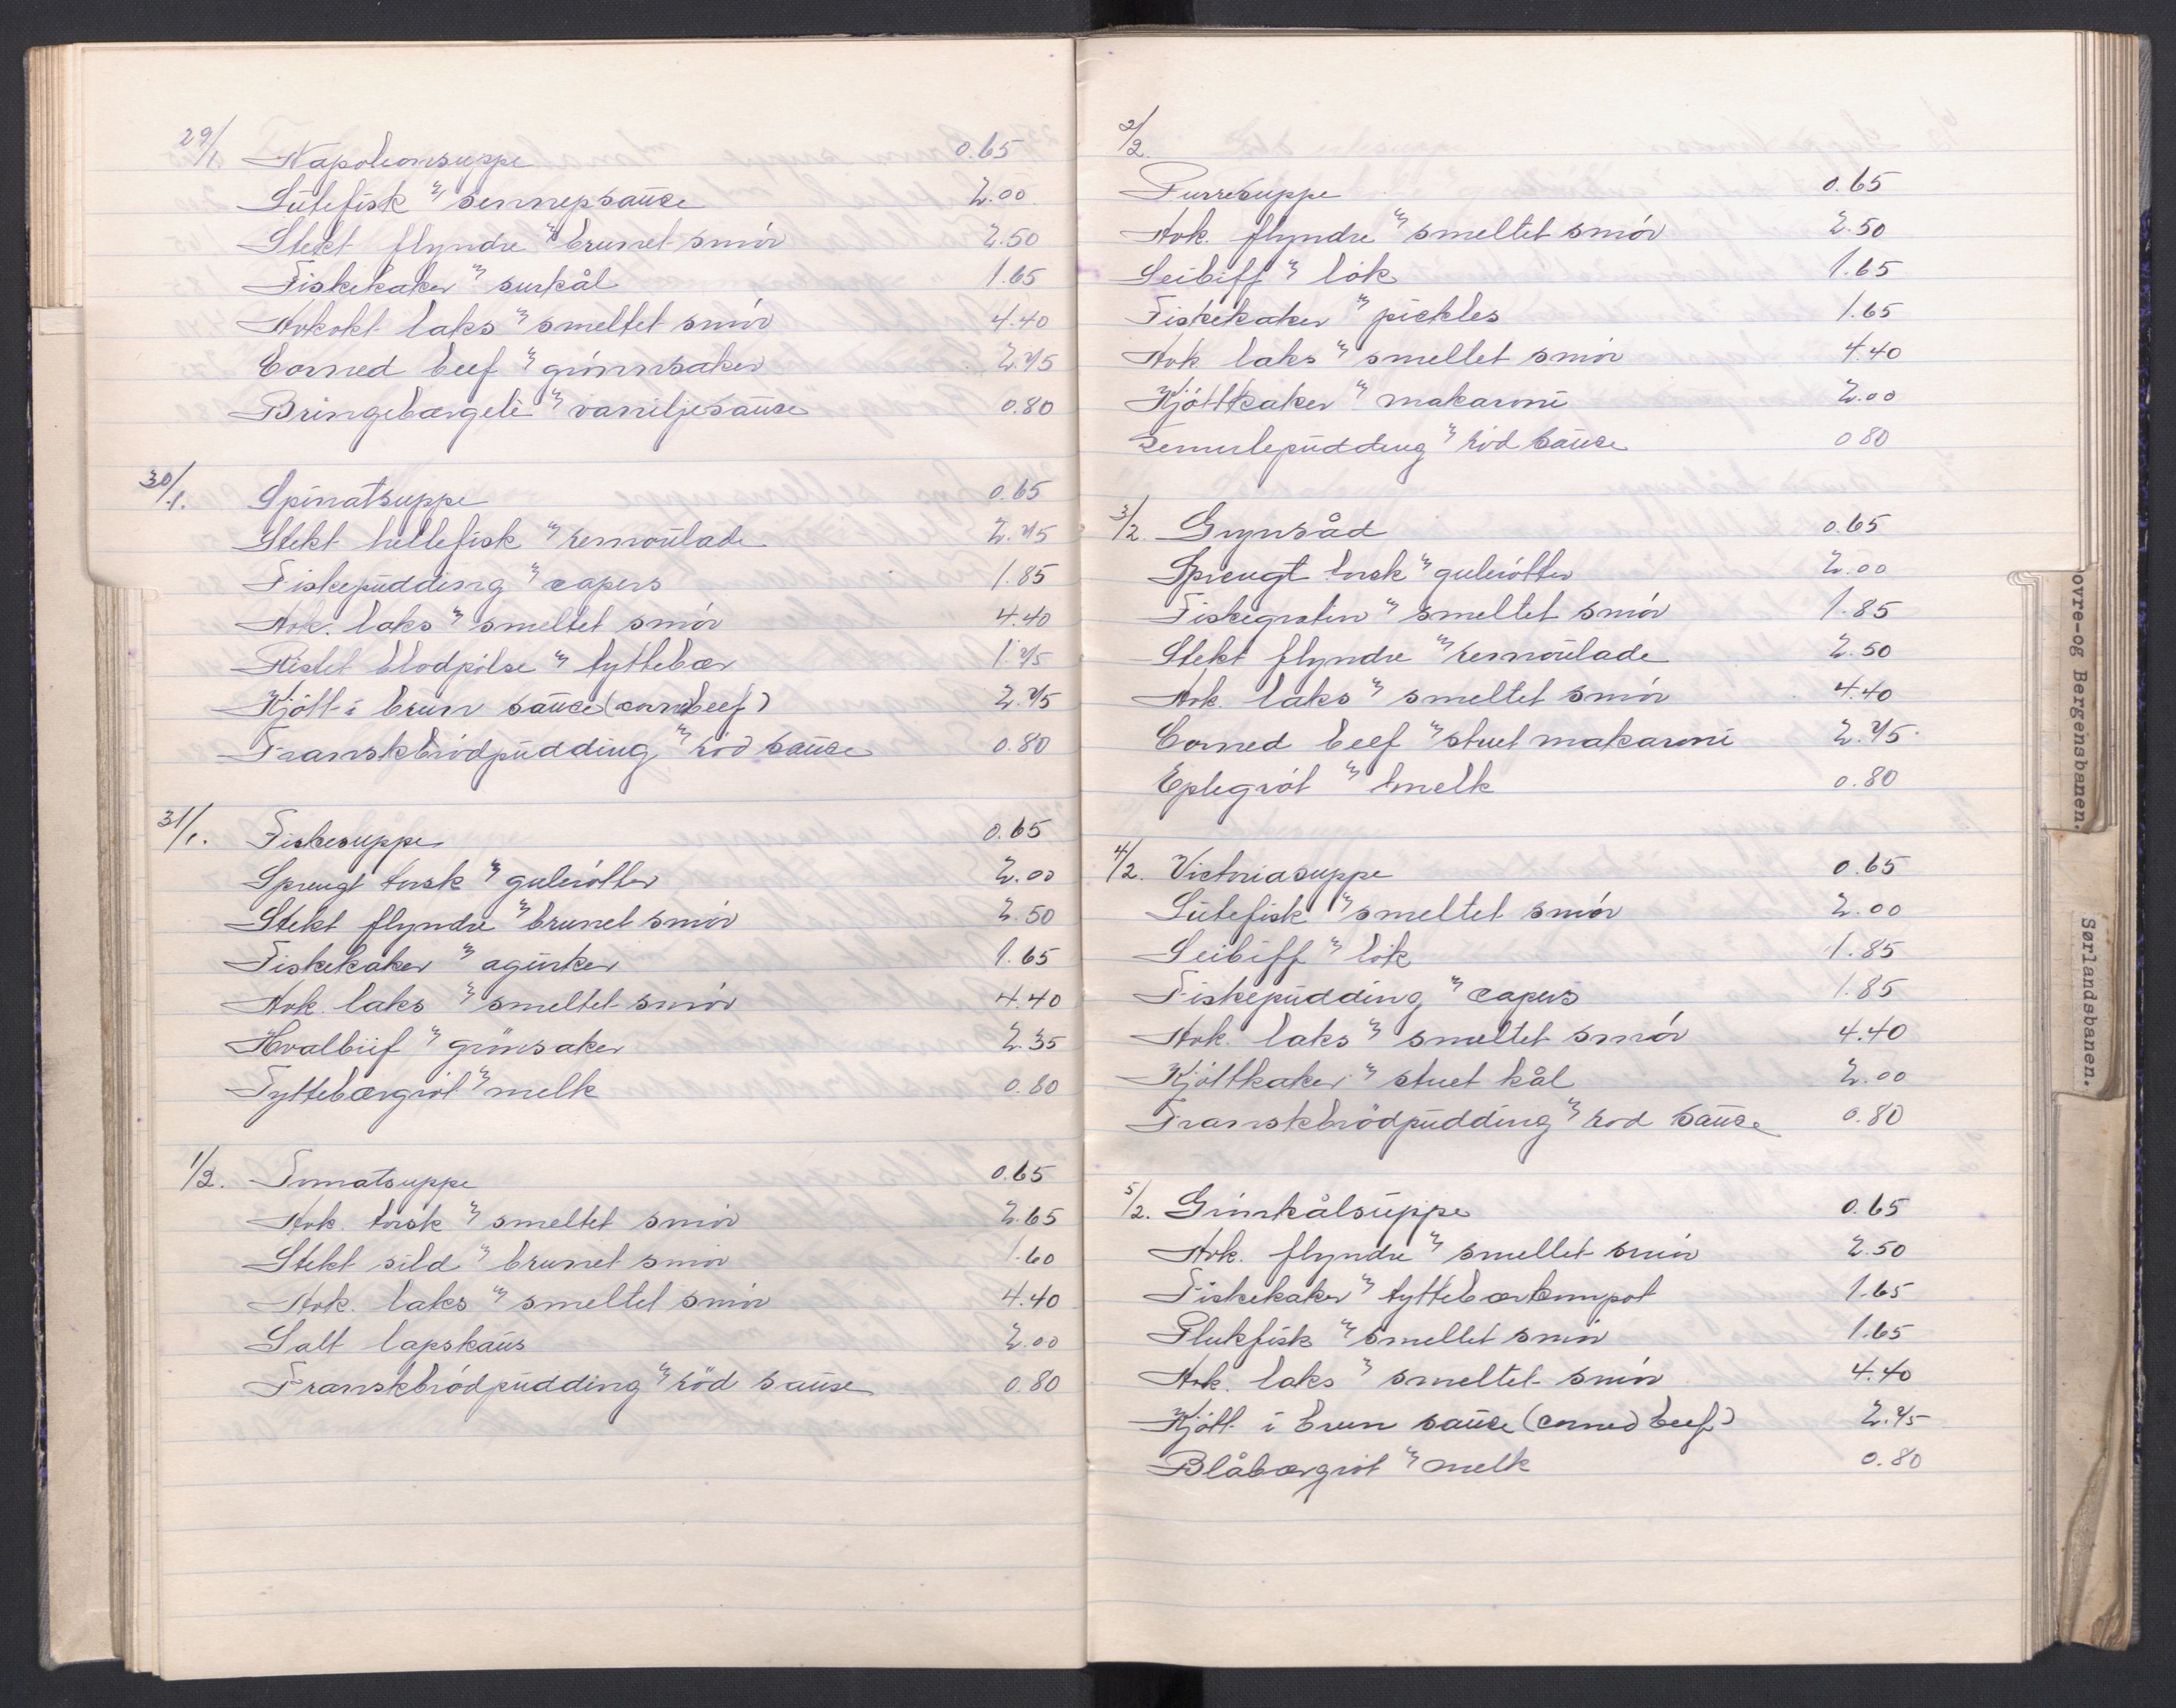 29/1. Napoleonsuppe 0.65
Lutefisk m sennepsause 2.00
Stekt flyndre m brunet smör 2.50
Fiskekaker m surkål 1.65
Avkokt laks m smeltet smör 4.40
Corned beef m grönnsaker 2.75
Bringebærgele m vaniljesause 0.80
30/1. Spinatsuppe 0.65
Stekt hellefisk m remoulade 2.75
Fiskepudding m capers 1.85
Avk. laks m smeltet smör 4.40
Ristet blodpölse m tyttebær 1.75
Kjött i brun sause (cornedbeef) 2.75
Franskbrödpudding m röd sause 0.80
31/1. Fiskesuppe 0.65
Sprengt torsk m gulerötter 2.00
Stekt flyndre m brunet smör 2.50
Fiskekaker m agurker 1.65
Avk. laks m smeltet smör 4.40
Hvalbiif m grönsaker 2.35
Tyttebærgröt m melk 0.80
1/2. Tomatsuppe 0.65
Avk. torsk m smeltet smör 2.65
Stekt sild m brunet smör 1.60
Avk. laks m smeltet smör 4.40
Salt lapskaus 2.00
Franskbrödpudding m röd sause 0.80
2/2.
Purresuppe 0.65
Avk. flyndre m smeltet smör 2.50
Seibiff m lök 1.65
Fiskekaker m pickles 1.65
Avk laks m smeltet smör 4.40
Kjöttkaker m makaroni 2.00
Semulepudding m röd sause 0 80
3/2. Grynsåd 0.65
Sprengt torsk m gulerötter 2.00
Fiskegratin m smeltet smör 1.85
Stekt flyndre m remoulade 2.50
Avk. laks m smeltet smör 4.40
Corned beef m stuet makaroni 2.75
Eplegröt m melk 0.80
4/2. Victoriasuppe 0.65
Lutefisk m smeltet smör 2.00
Seibiff m lök 1.85
Fiskepudding m capers 1.85
Avk. laks m smeltet smör 4.40
Kjöttkaker m stuet kål 2.00
Franskbrödpudding m röd sause 0.80
5/2. Grönkålsuppe 0.65
Avk. flyndre m smeltet smör 2.50
Fiskekaker m tyttebærkompot 1.65
Plukfisk m smeltet smör 1.65
Avk. laks m smeltet smör 4.40
Kjött i brun sause (corned beef) 2.75
Blåbærgröt m melk 0.80
ovre-og Bergensbanen.
Sørlandsbanen.